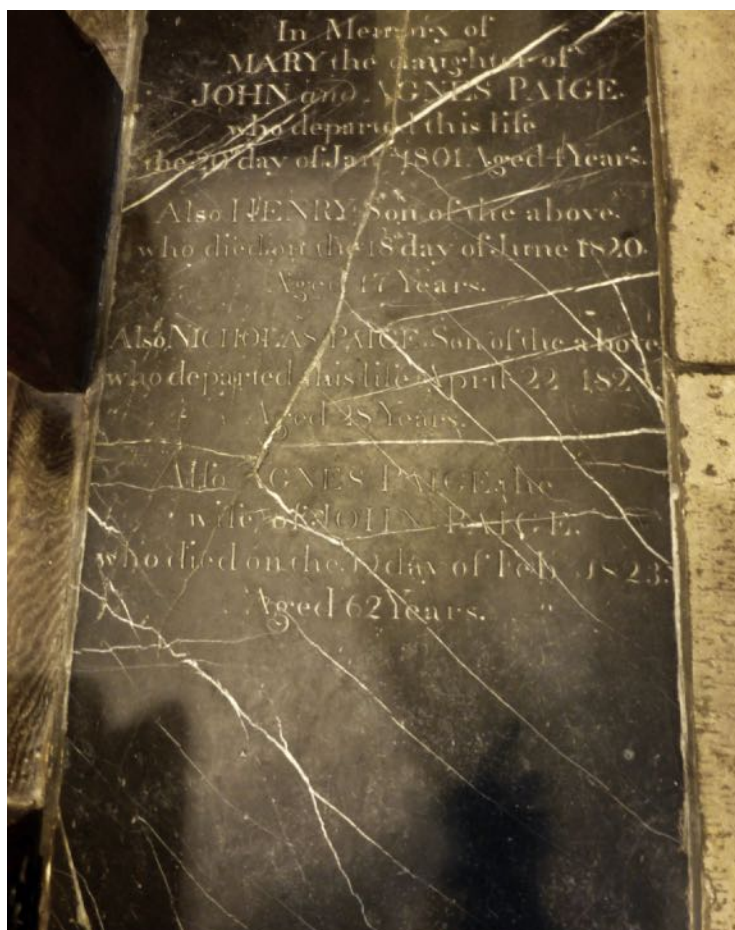 In Memory of
MARY the daughter of
JOHN and AGNES PAIGE.
who departed this life
the day of Jany 1801. Aged Years.
Also HENRY Son of the above.
who died on the 18 day of June 1820.
Aged 17 Years.
Also NICHOLAS PAIGE Son of the above
who departed this life April 22
Aged 28 Years.
Also AGNES PAIGE the
wife of JOHN PAIGE.
who died on the day of Feb 1823.
Aged 62 Years.